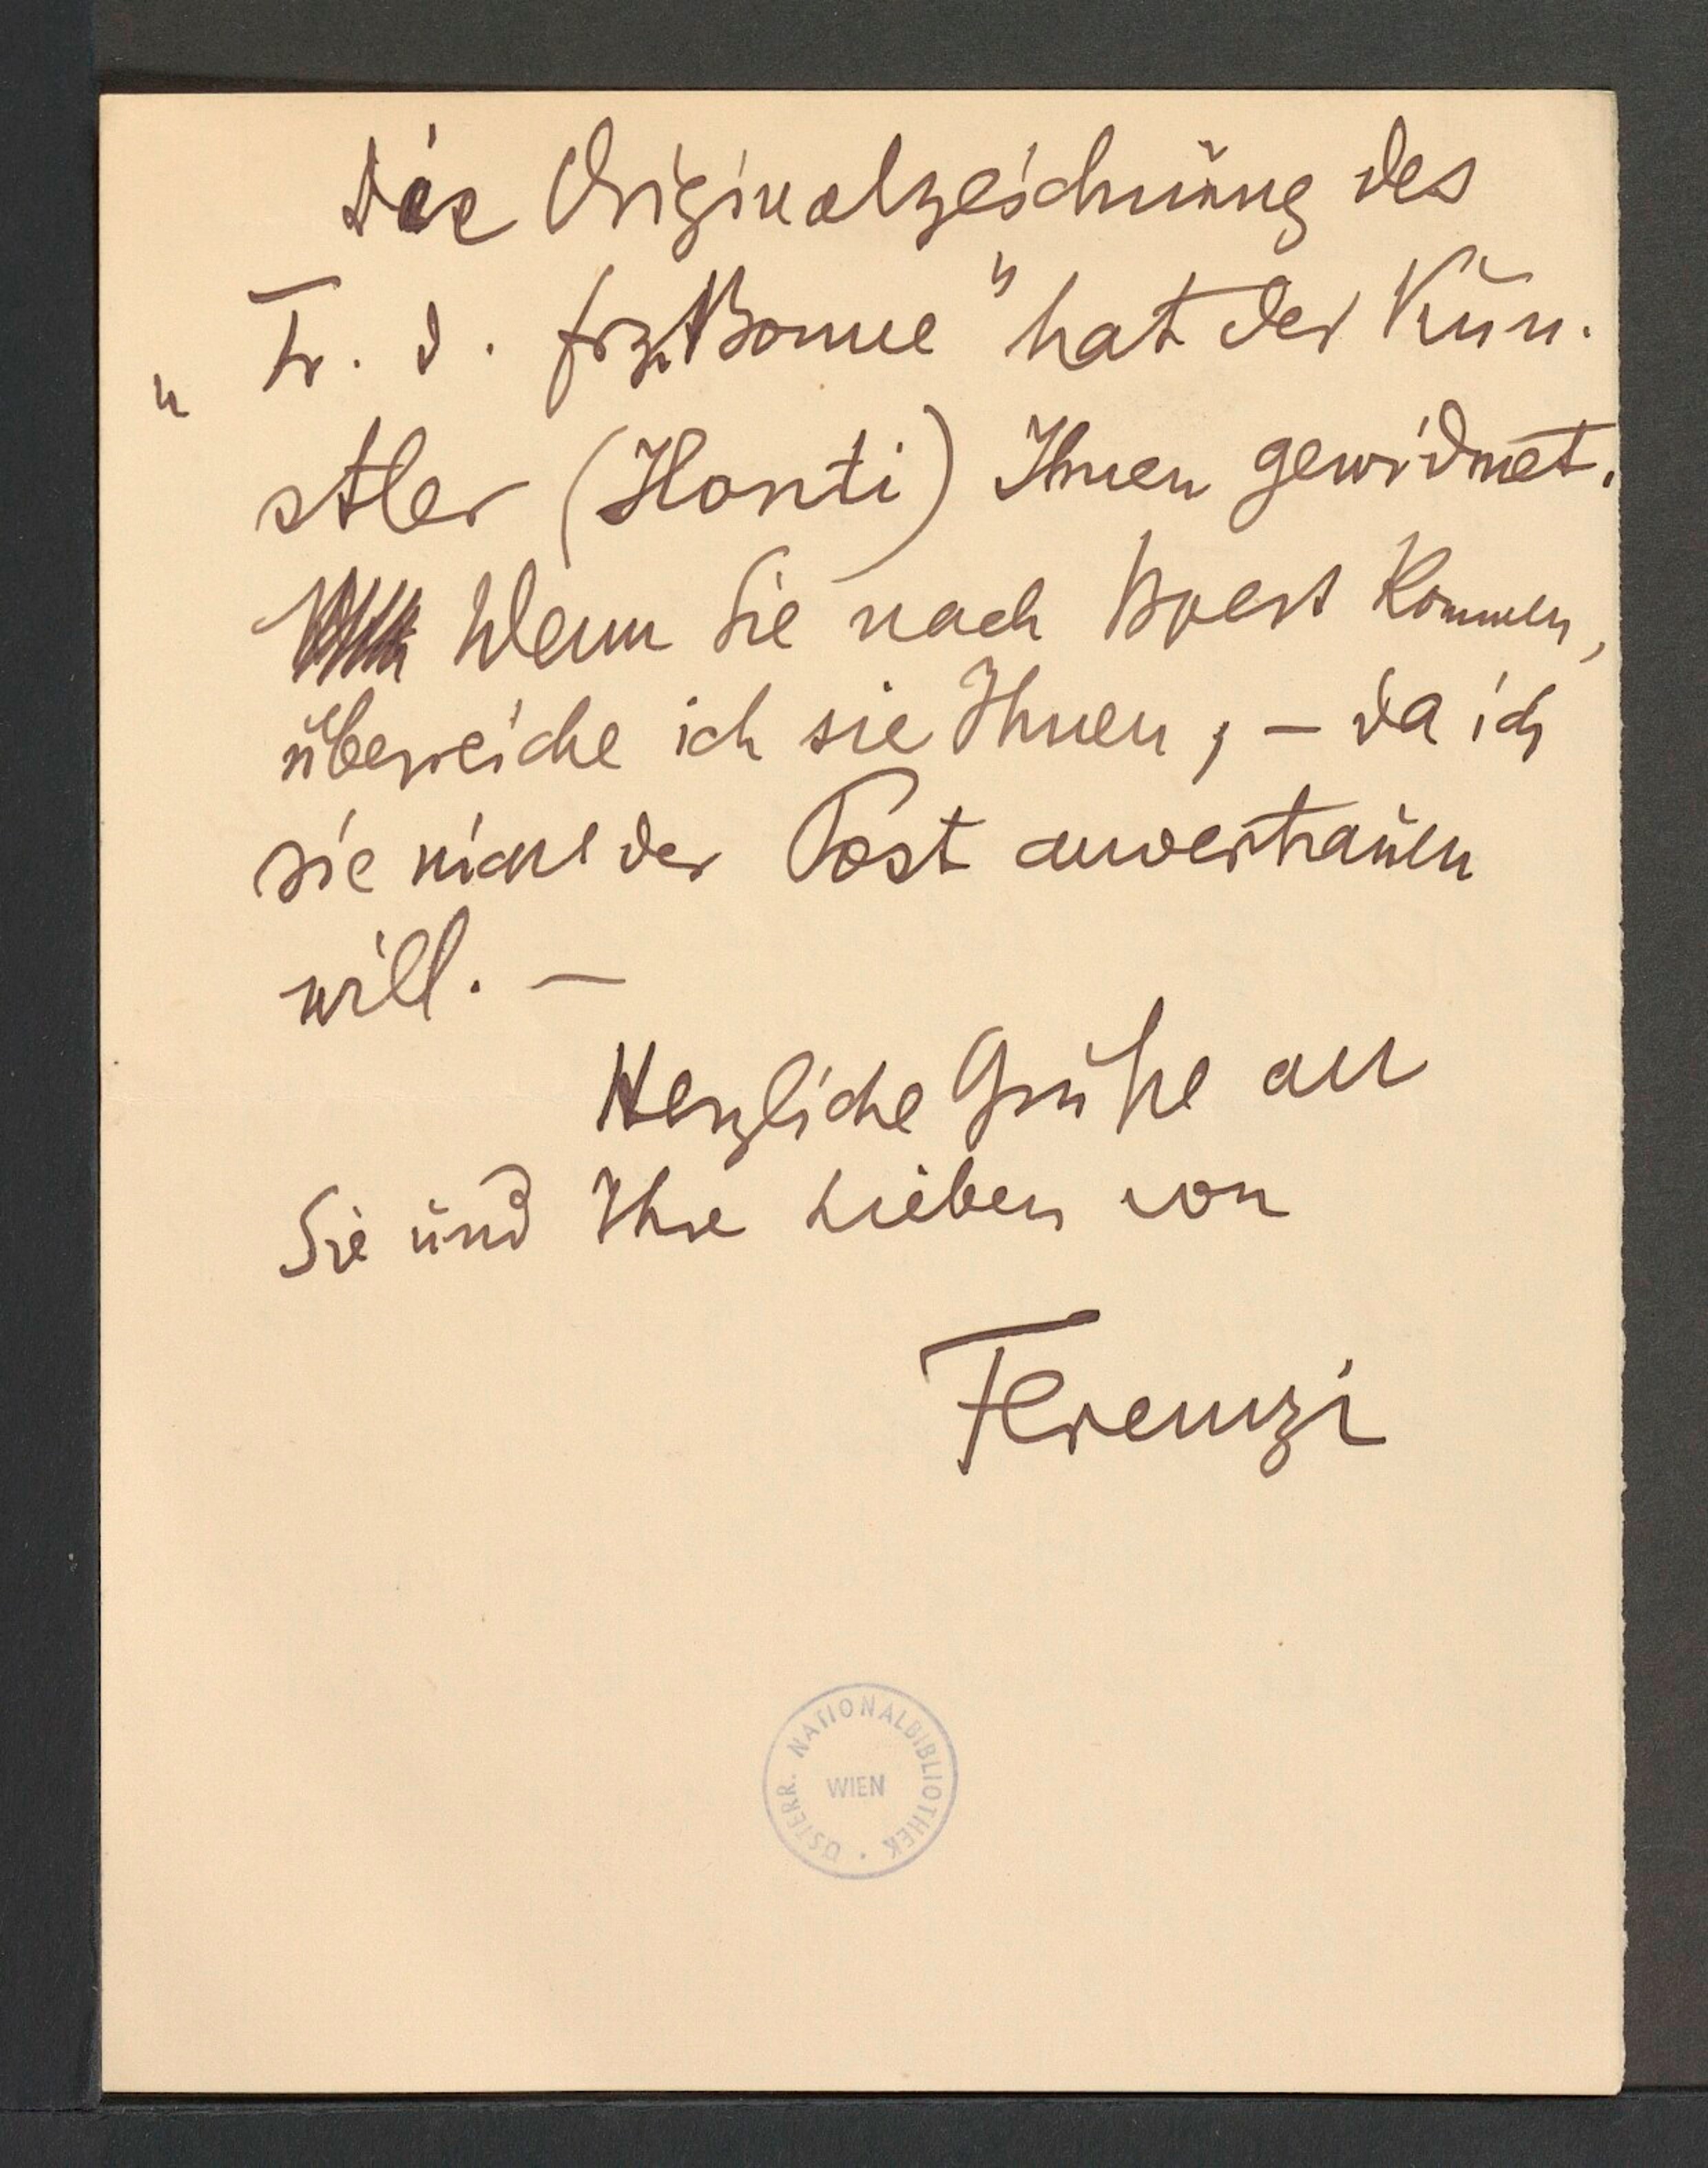 Die Originalzeichnung des
„Tr. d. frz. Bonne" hat der Kün-
stler (Honti) Ihnen gewidmet.
Wenn Sie nach Bpest kommen,
überreiche ich sie Ihnen, – da ich
sie nicht der Post anvertrauen
will. –
Herzliche Grüße an
Sie und Ihre Lieben von
Ferenczi
ÖSTERR. NATIONALBIBLIOTHEK
WIEN